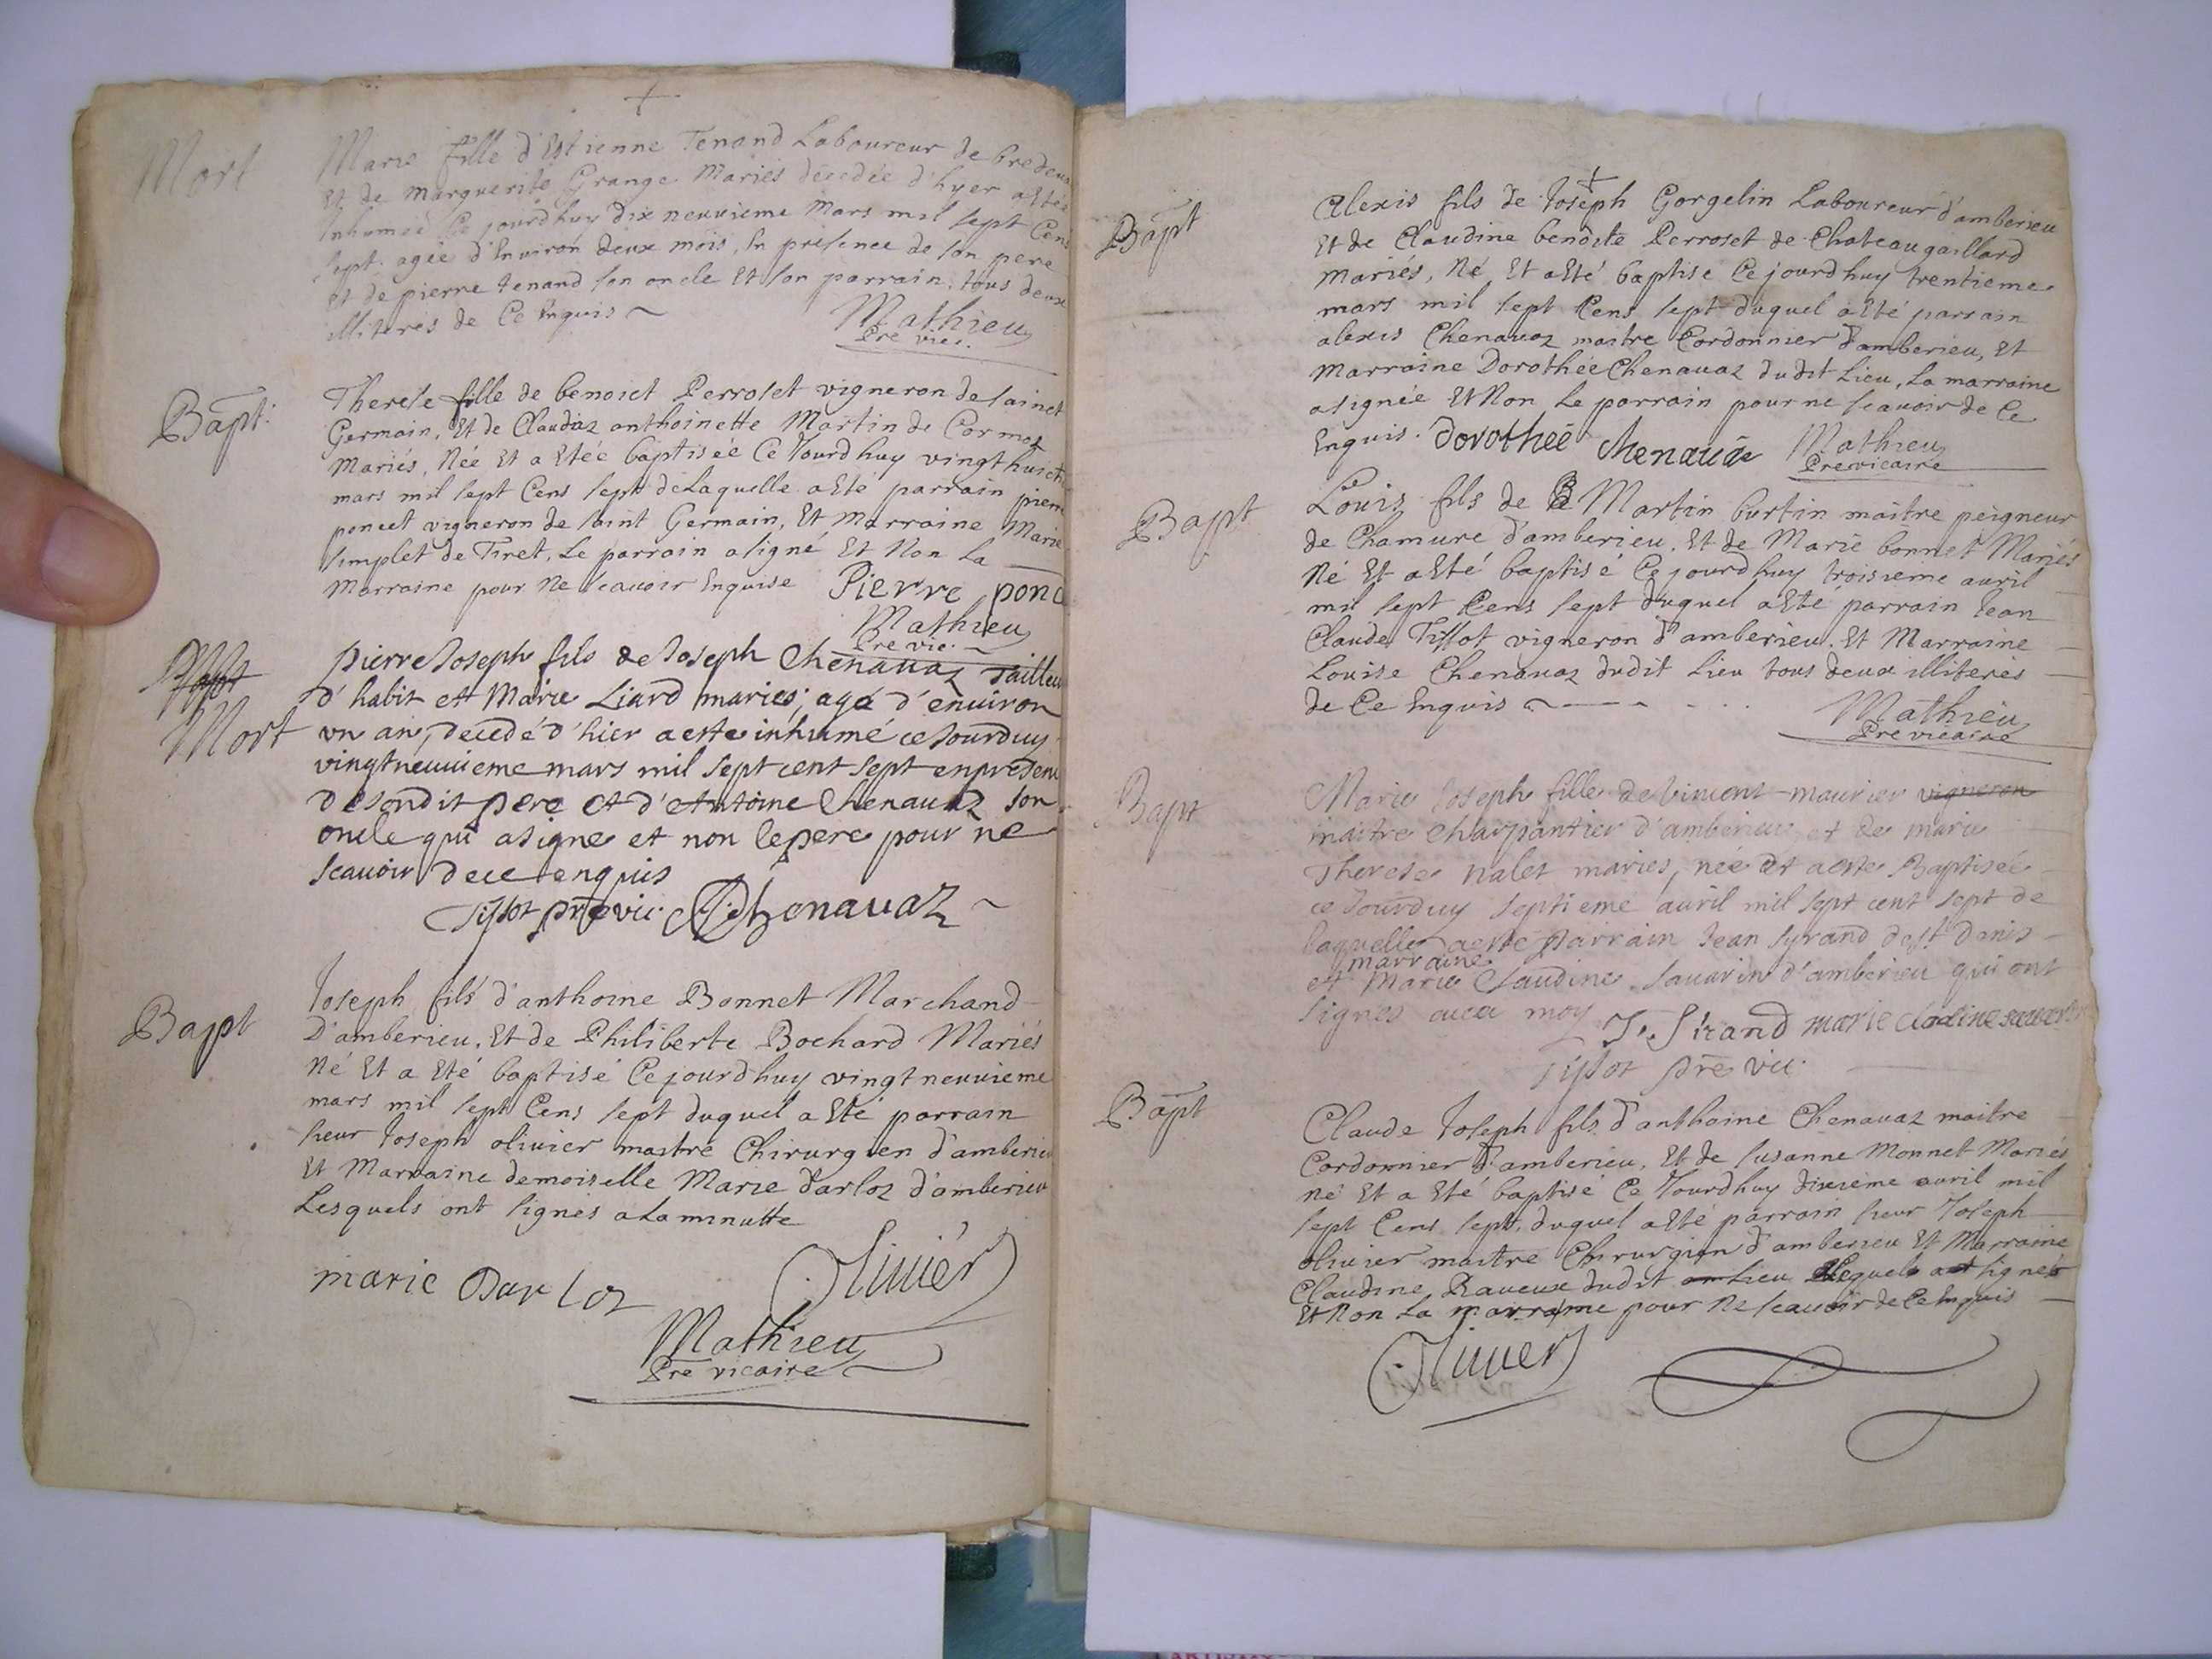 Mort
Marie fille d'Estienne Tenand Laboureur de
Et de Marguerite Grange Mariés decedée d'hyer a Eté
Inhumée Ce jourdhuy dix neuvieme Mars mil sept Cens
sept. agée d'Environ deux mois, En presence de son pere
et de pierre tenand son oncle Et son parrain, tous deux
illiteres de Ce Enquis ~
Mathieu
Pre vicc.
Bapt:
Therese fille de benoict Perroset vigneron de sainct
Germain, Et de Claudaz anthoinette Martin de Cormoz
Mariés, Née Et a Etéé baptisée Ce Jourdhuy vingt huict
mars mil sept Cens sept de Laquelle a Eté parrain pierre
poncet vigneron de saint Germain, Et Marraine Marie
simplet de Tiret, Le parrain a signé Et Non La
Marraine pour Ne scavoir Enquise Pierre ponc
Mathieu
Pre vic. ~
Bapt
Mort
pierre Joseph fils de Joseph Chenavaz Tailleu
d'habit et Marie Liard maries; agé d'environ
un an, decedé d'hier a este inhumé ce Jourduy
vingtneuvieme mars mil sept cent sept en presen
de sondit pere et d'Antoine Chenavaz son
oncle qui a signe et non le pere pour ne
scavoir de ce enquis
Tissot pre vic. AChenavaz ~
Bapt
Joseph fils d'anthoine Bonnet Marchand
D'amberieu, Et de Philiberte Bochard Mariés
Né Et a Eté baptisé Ce jourdhuy vingt neuvieme
mars mil sept Cens sept duquel a Eté parrain
sieur Joseph olivier maitre Chirurgien d'amberieu
Et Marraine demoiselle Marie darloz d'amberieu
Lesquels ont signés a La minutte
marie Darloz Olivier
Mathieu
Pre vicaire
Bapt
Alexis fils de Joseph Gorgelin Laboureur d'amberieu
Et de Claudine benoite Perroset de Chateaugaillard
Mariés, Né Et a Eté baptisé Ce jourdhuy trentieme
mars mil sept Cens sept duquel a Eté parrain
alexis Chenavaz maitre Cordonnier d'amberieu, Et
Marraine Dorothée Chenavaz dudt Lieu, La marraine
a signée Et Non Le parrain pour ne scavoir de Ce
Enquis. dorotheé chenavaz Mathieu
Pre vicaire
Bapt
Louis fils de Martin burtin maitre peigneur
de Chamure d'amberieu, Et de Marie bonnet Mariés
Né Et a Eté baptisé Ce jourdhuy troisieme avril
mil sept Cens sept duquel a Eté parrain Jean
Claude Tissot vigneron d'amberieu. Et Marraine
Louise Chenavaz dudit Lieu tous deux illiteres
de Ce Enquis ~
Mathieu
Pre vicaire
Bapt
Marie Joseph fille de vincent maurier vigneron
maitre charpantier d'amberieu et de marie
Therese nalet maries, née et a este Baptisée
ce Jourduy septieme avril mil sept cent sept de
laquelle a este parrain Jean syrand de st Denis
marraine
et Marie Claudine savarin d'amberieu qui ont
signés avec moy J. Sirand marie clodine savarin
Tissot pre vic.
Bapt
Claude Joseph fils d'anthoine Chenavaz maitre
Cordonnier d'amberieu, Et de susanne Monnet Mariés
né Et a Eté baptisé Ce Jourdhuy dixieme avril mil
sept Cens sept, duquel a Eté parrain sieur Joseph
olivier maitre Chirurgien d'amberieu Et Marraine
Claudine Raveux dudit Lieu Lequel a signe
Et Non La marraine pour Ne scavoir de Ce Enquis
Olivier